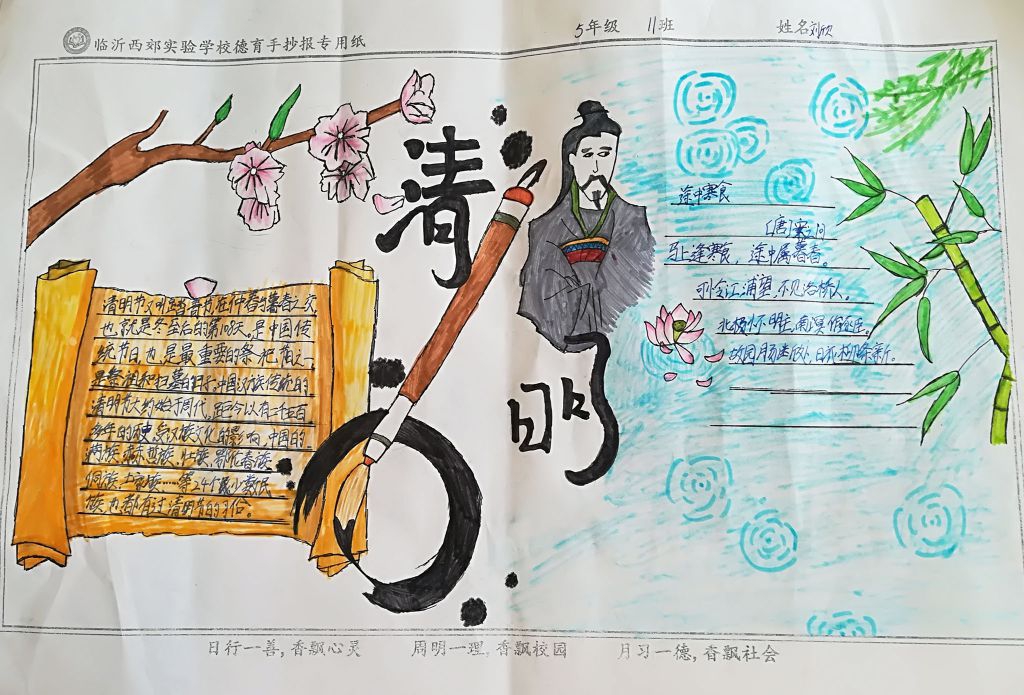 临沂西郊实验学校德育手抄报专用纸
5年级 11班 姓名 刘欣
清明
清明节又叫踏青节,在仲春与暮春之交
也就是冬至后的第108天,是中国传
统节日,也是最重要的祭祀节日之一,
是祭祖和扫墓的日子,中国汉族传统的
清明节大约始于周代,距今以有二千五百
多年的历史,受汉族文化的影响,中国的
满族、赫哲族、壮族、鄂伦春族
侗族、土家族……等24个最少数民
族,也都有过清明节的习俗。
途中寒食
[唐]宋之问
马上逢寒食,途中属暮春。
可怜江浦望,不见洛桥人。
北极怀明主,南溟作逐臣。
故园肠断处,日夜柳条新。
日行一善,香飘心灵 周明一理,香飘校园 月习一德,香飘社会